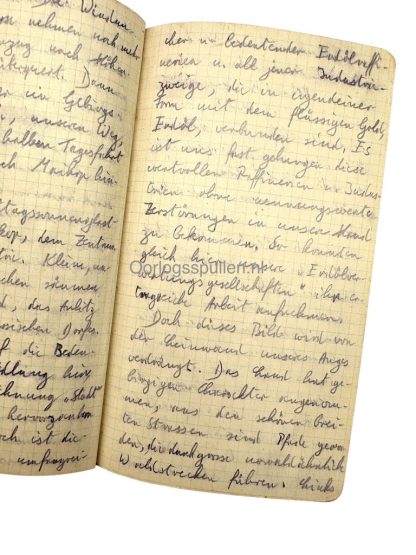 Die Windun-
nehmen noch mehr
zug nach Höhen-
Dann
in Gebirgs-
unseren Weg,
halben Tagesfahrt
ch Maikop hin-
ttagssonnenglast-
kop, dem Zentrum
Klein, un-
chen säumen
d, das Antlitz
ssischen Dorfes.
f die Bedeu-
edlung hin,
ichnung „Stadt"
hervorzuheben
ch ist die
umfangrei-
cher u. bedeutender Erdölraffi-
nerien u. all jener Industrie-
zweige, die in irgendeiner
Form mit dem flüssigen Gold,
Erdöl, verbunden sind. Es
ist uns fast gelungen diese
wertvollen Raffinerien u. Indus-
trien ohne nennenswerten
Zerstörungen in unsere Hand
zu bekommen. So konnten
gleich hier unsere „Erdölver-
wertungsgesellschaften" ihre er-
tragreiche Arbeit aufnehmen.
Doch dieses Bild wird von
der Leinwand unseres Auges
verdrängt. Das Land hat ge-
birgigen Charakter angenom-
men, aus den schönen brei-
ten Strassen sind Pfade gewor-
den, die durch grosse urwaldähnliche
Waldstrecken führen. Links
Oorlogsspullen.nl